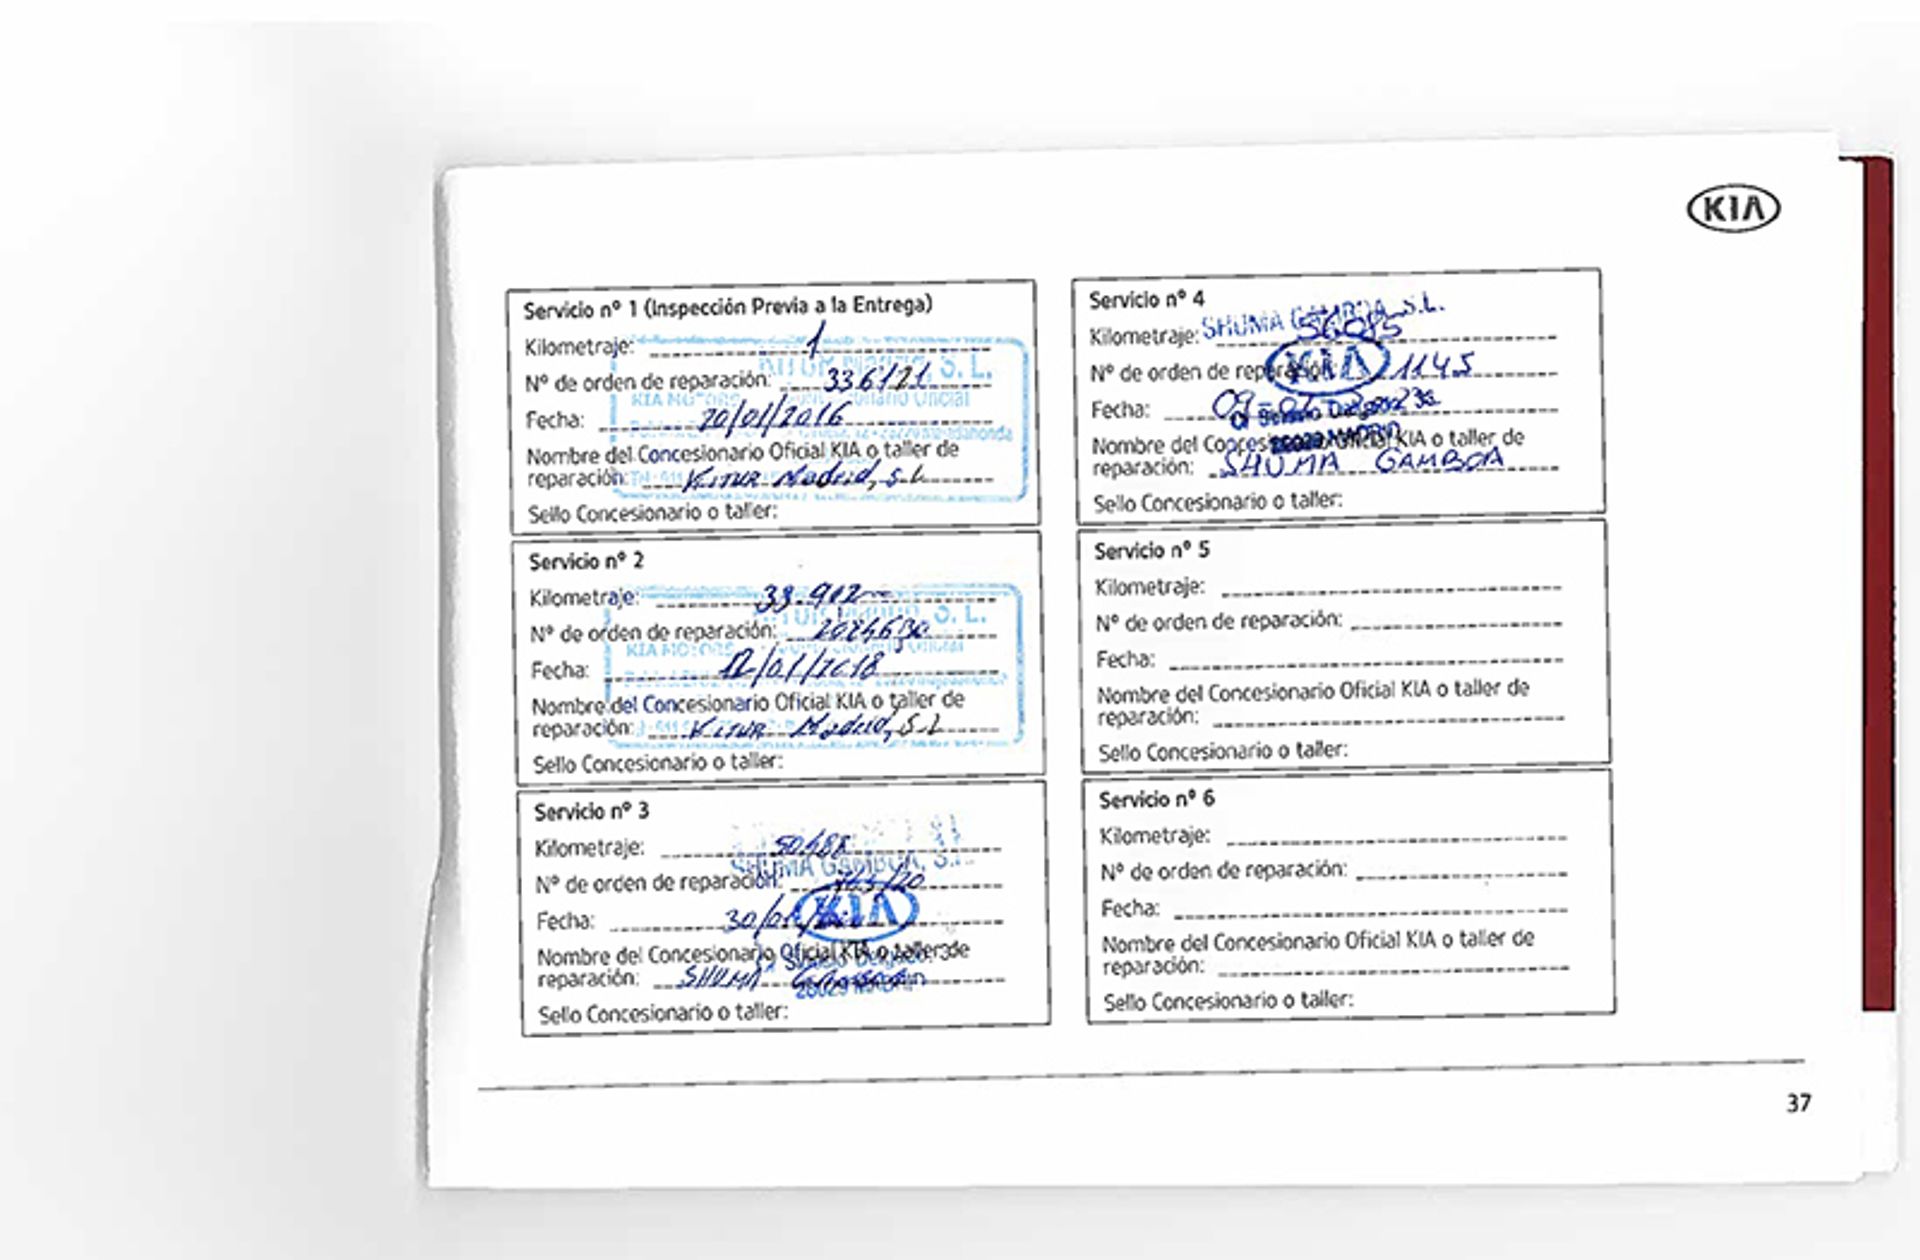 KIA
Servicio nº 1 (Inspección Previa a la Entrega)
Kilometraje: 1
Nº de orden de reparación: 336121
Fecha: 20/01/2016
Nombre del Concesionario Oficial KIA o taller de
reparación: Kitur Madrid, S.L
Sello Concesionario o taller:
Servicio nº 2
Kilometraje: 33.902
Nº de orden de reparación:
Fecha: 12/01/2018
Nombre del Concesionario Oficial KIA o taller de
reparación: Kitur Madrid, S.L
Sello Concesionario o taller:
Servicio nº 3
Kilometraje: 50488
Nº de orden de reparación:
Fecha: 30/01/
Nombre del Concesionario Oficial KIA o taller de
reparación: SHUMA GAMBOA
Sello Concesionario o taller:
SHUMA GAMBOA, S.L.
KIA
Servicio nº 4
Kilometraje: 56015
Nº de orden de reparación: 1145
Fecha: 09-
Nombre del Concesionario Oficial KIA o taller de
reparación: SHUMA GAMBOA
Sello Concesionario o taller:
SHUMA GAMBOA, S.L.
KIA
Servicio nº 5
Kilometraje:
Nº de orden de reparación:
Fecha:
Nombre del Concesionario Oficial KIA o taller de
reparación:
Sello Concesionario o taller:
Servicio nº 6
Kilometraje:
Nº de orden de reparación:
Fecha:
Nombre del Concesionario Oficial KIA o taller de
reparación:
Sello Concesionario o taller:
37